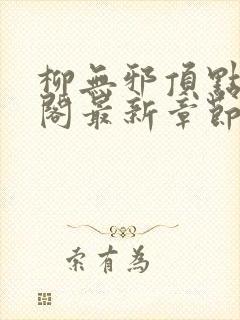 柳無邪頂點
閣最新章節
索有為